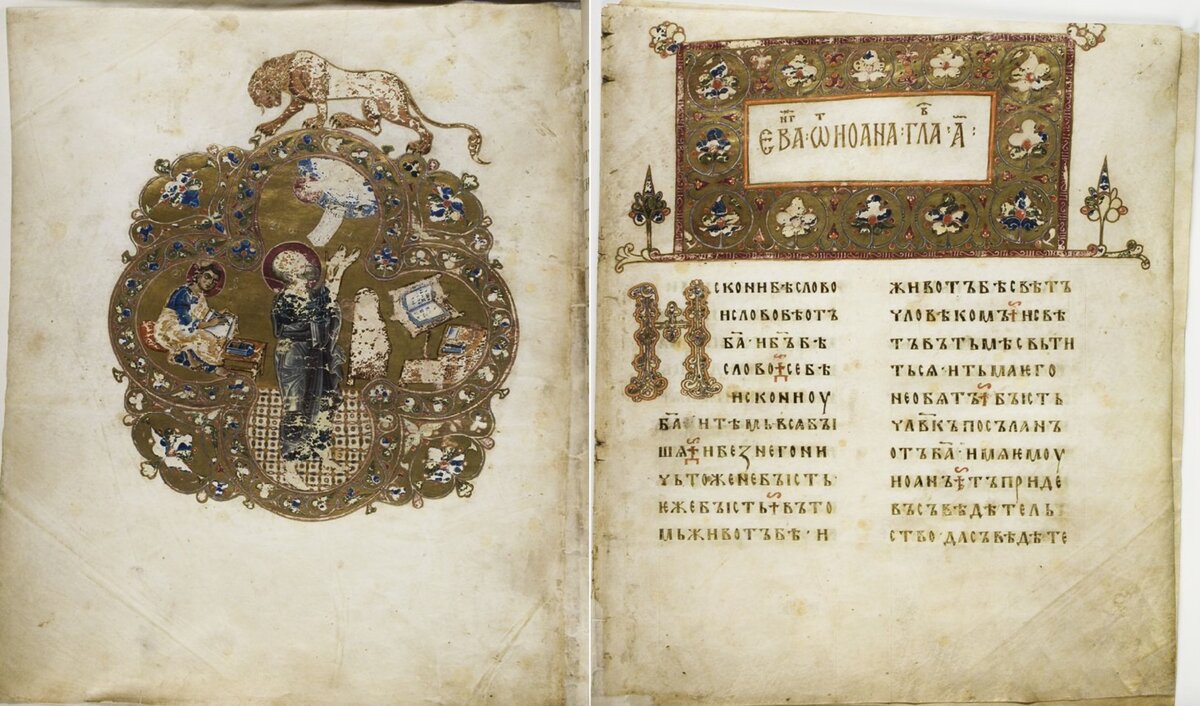 ЕВА҃НГ · ѾТ ИОАНА · ГЛА҃В · А҃ :
ИСКОНИ БѢ СЛОВО
И СЛОВО БѢ ОТЪ
БА҃ · И БЪ҃ БѢ
СЛОВО · СЕ БѢ
ИСКОНИ ОУ
БА҃ И ТѢМЬ ВСЯ БЫ
ШЯ · И БЕЗ НЕГО НИ
ЧЬТОЖЕ НЕ БЫСТЬ ·
ѤЖЕ БЫСТЬ · ВЪ ТО
МЬ ЖИВОТЪ БѢ · И
ЖИВОТЪ БѢ СВѢТЪ
ЧЛОВѢКОМЪ · И СВѢ
ТЪ ВЪ ТЬМѢ СВЬТИ
ТЬСЯ · И ТЬМА ѤГО
НЕ ОБЯТЪ · БЫСТЬ
ЧЛ҃ВКЪ ПОСЪЛАНЪ
ОТЪ БА҃ · ИМЯ ѤМОУ
ИОАНЪ · ТЪ ПРИДЕ
ВЪ СЪВѢДѢТЕЛЬ
СТВО · ДА СЪВѢДѢТЕ